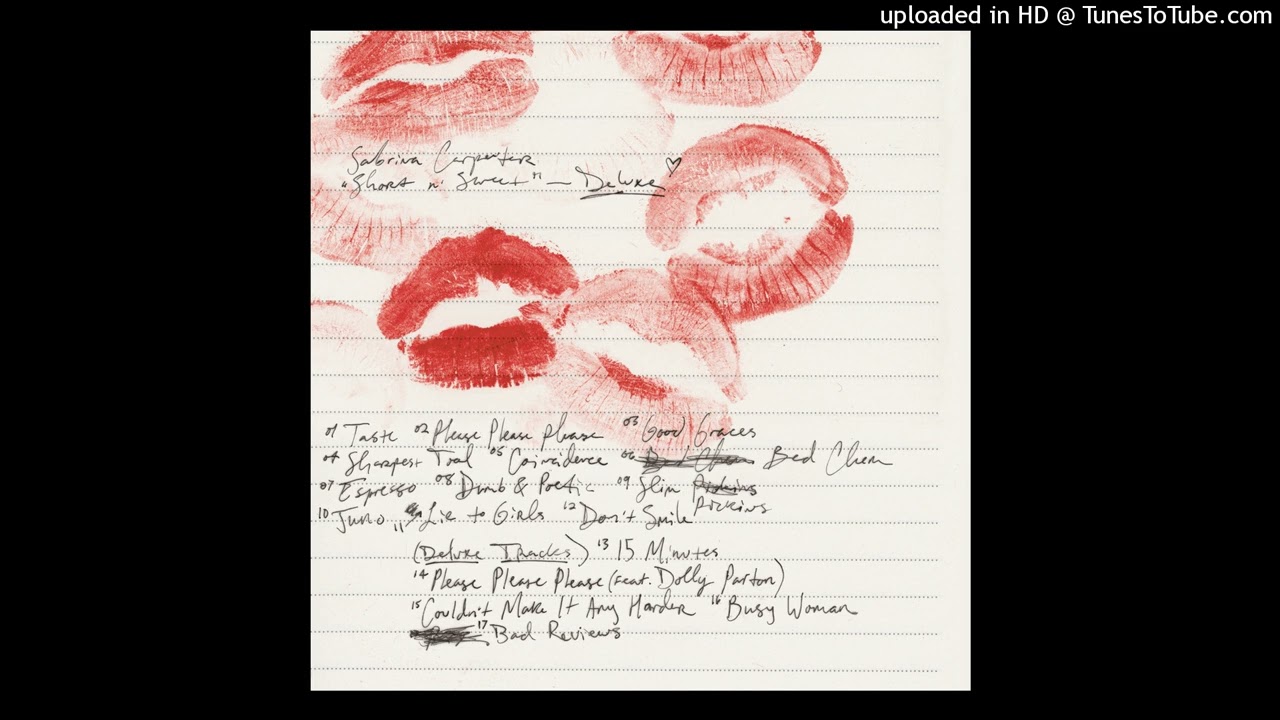 uploaded in HD @ TunesToTube.com
Sabrina Carpenter
"Short n' Sweet" — Deluxe ♡
01 Taste 02 Please Please Please 03 Good Graces
04 Sharpest Tool 05 Coincidence 06 Bed Chem Bed Chem
07 Espresso 08 Dumb & Poetic 09 Slim Pickins
Pickins
10 Juno 11 Lie to Girls 12 Don't Smile
(Deluxe Tracks) 13 15 Minutes
14 Please Please Please (feat. Dolly Parton)
15 Couldn't Make It Any Harder 16 Busy Woman
17 Bad Reviews